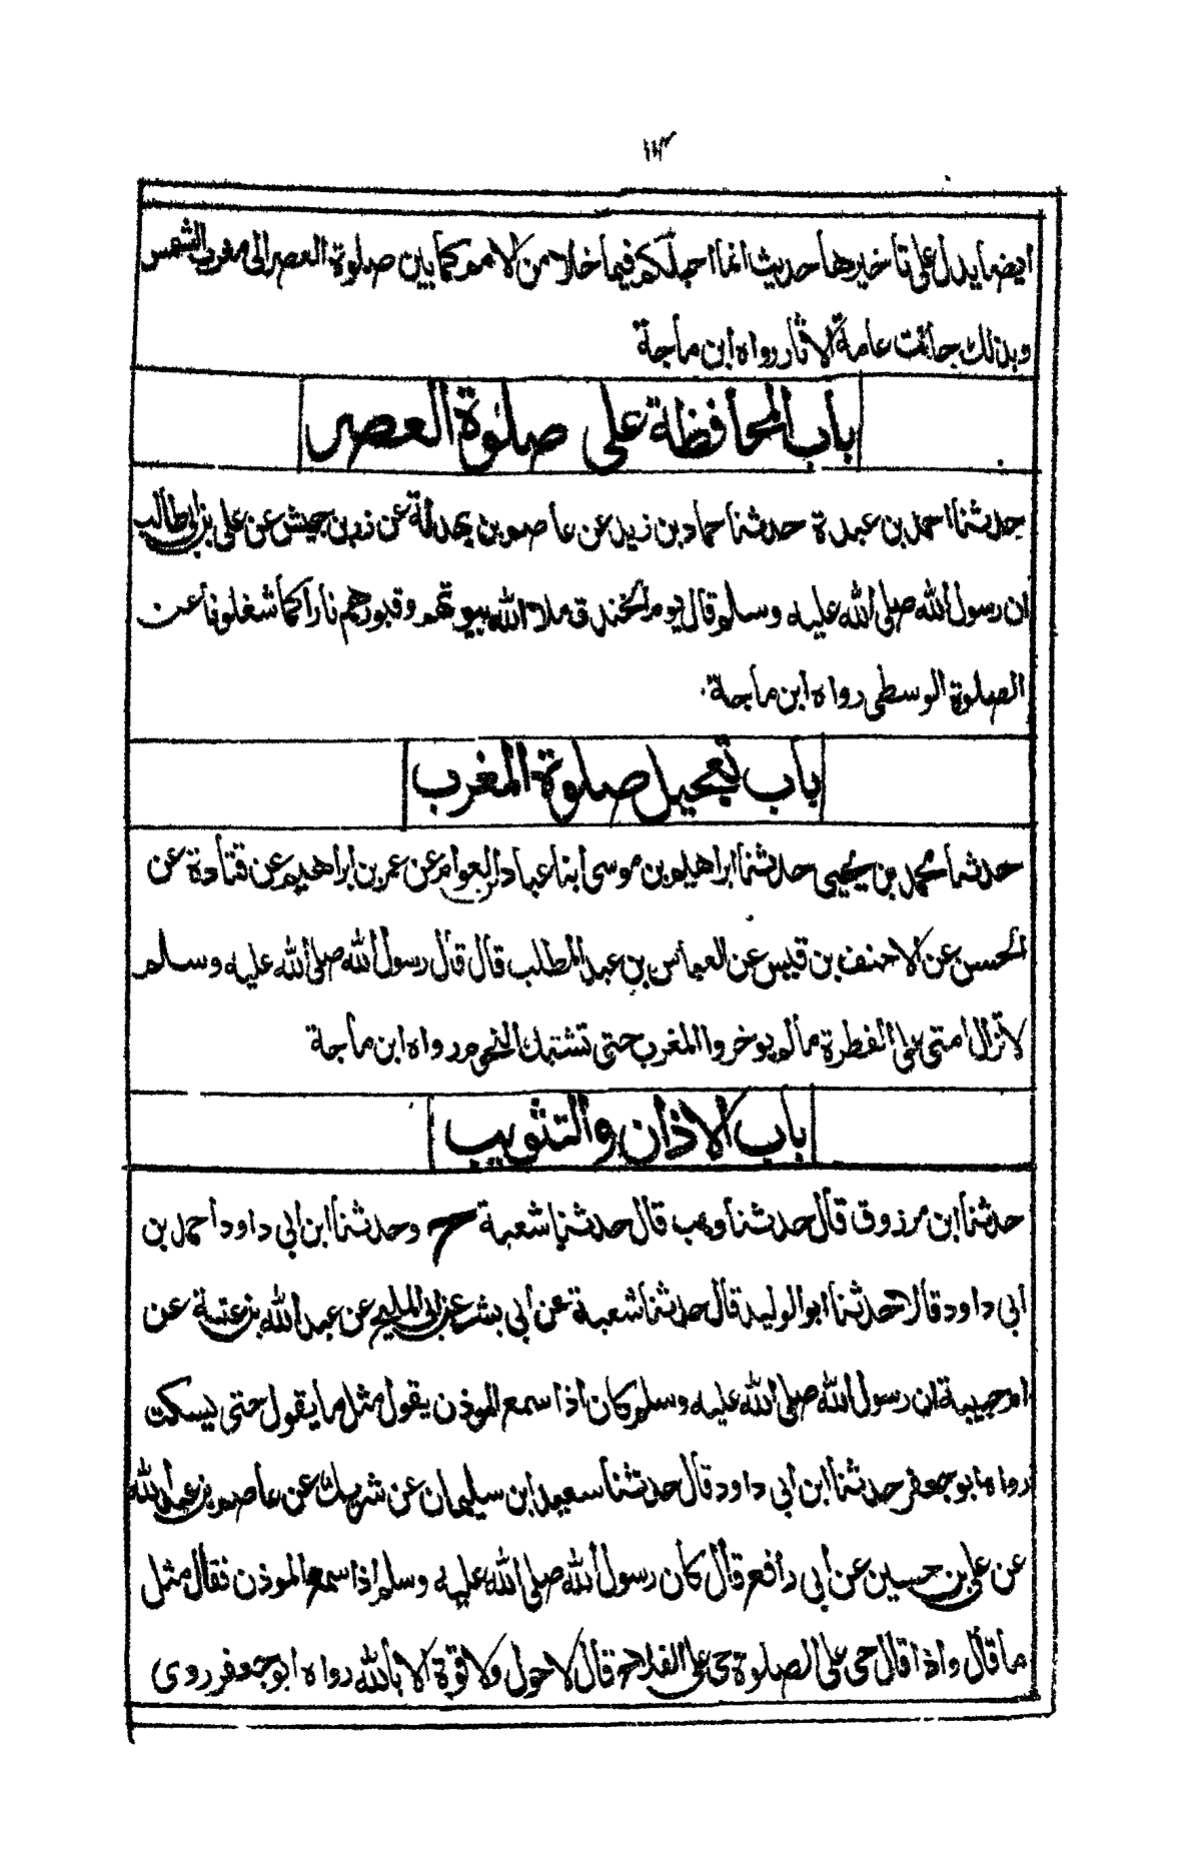 ١١٣
ايضا يدل على تأخيرها حديث انما اجلكم فيما خلا من الامم كما بين صلوة العصر الى مغرب الشمس
وبذلك جائت عامة الاثار رواه ابن ماجة
باب المحافظة على صلوة العصر
حدثنا احمد بن عبدة حدثنا حماد بن زيد عن عاصم بن بهدلة عن زر بن حبيش عن على بن ابى طالب
ان رسول الله صلى الله عليه وسلم قال يوم الخندق ملا الله بيوتهم وقبورهم نارا كما شغلونا عن
الصلوة الوسطى رواه ابن ماجة
باب تعجيل صلوة المغرب
حدثنا محمد بن يحيى حدثنا ابراهيم بن موسى ابنا عباد بن العوام عن عمر بن ابراهيم عن قتادة عن
الحسن عن الاحنف بن قيس عن العباس بن عبد المطلب قال قال رسول الله صلى الله عليه وسلم
لا تزال امتى على الفطرة ما لم يوخروا المغرب حتى تشتبك النجوم رواه ابن ماجة
باب الاذان والتثويب
حدثنا ابن مرزوق قال حدثنا وهب قال حدثنا شعبة ح وحدثنا ابن ابى داود احمد بن
ابى داود قالا حدثنا ابو الوليد قال حدثنا شعبة عن ابى بشر عن ابى المليح عن عبد الله بن عتبة عن
ام حبيبة ان رسول الله صلى الله عليه وسلم كان اذا سمع الموذن يقول مثل ما يقول حتى يسكت
رواه ابو جعفر حدثنا ابن ابى داود قال حدثنا سعيد ابن سليمان عن شريك عن عاصم بن عبد الله
عن على بن حسين عن ابى رافع قال كان رسول الله صلى الله عليه وسلم اذا سمع الموذن فقال مثل
ما قال واذا قال حى على الصلوة حى على الفلاح قال لا حول ولا قوة الا بالله رواه ابو جعفر روى